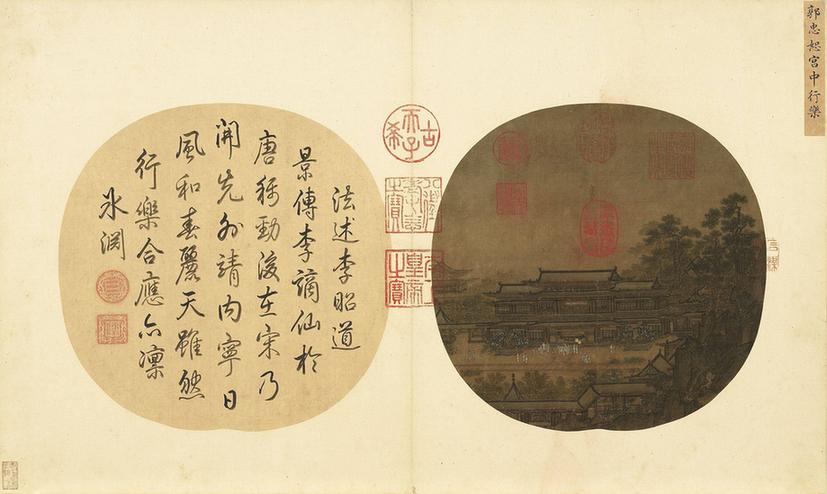 郭忠恕宮中行樂
法述李昭道
景傳李謫仙於
唐稱勁後在宋乃
開先外靖內寧日
風和春麗天雖然
行樂合應亦凜
冰淵
古希天子
八徵耄念之寶
太上皇帝之寶